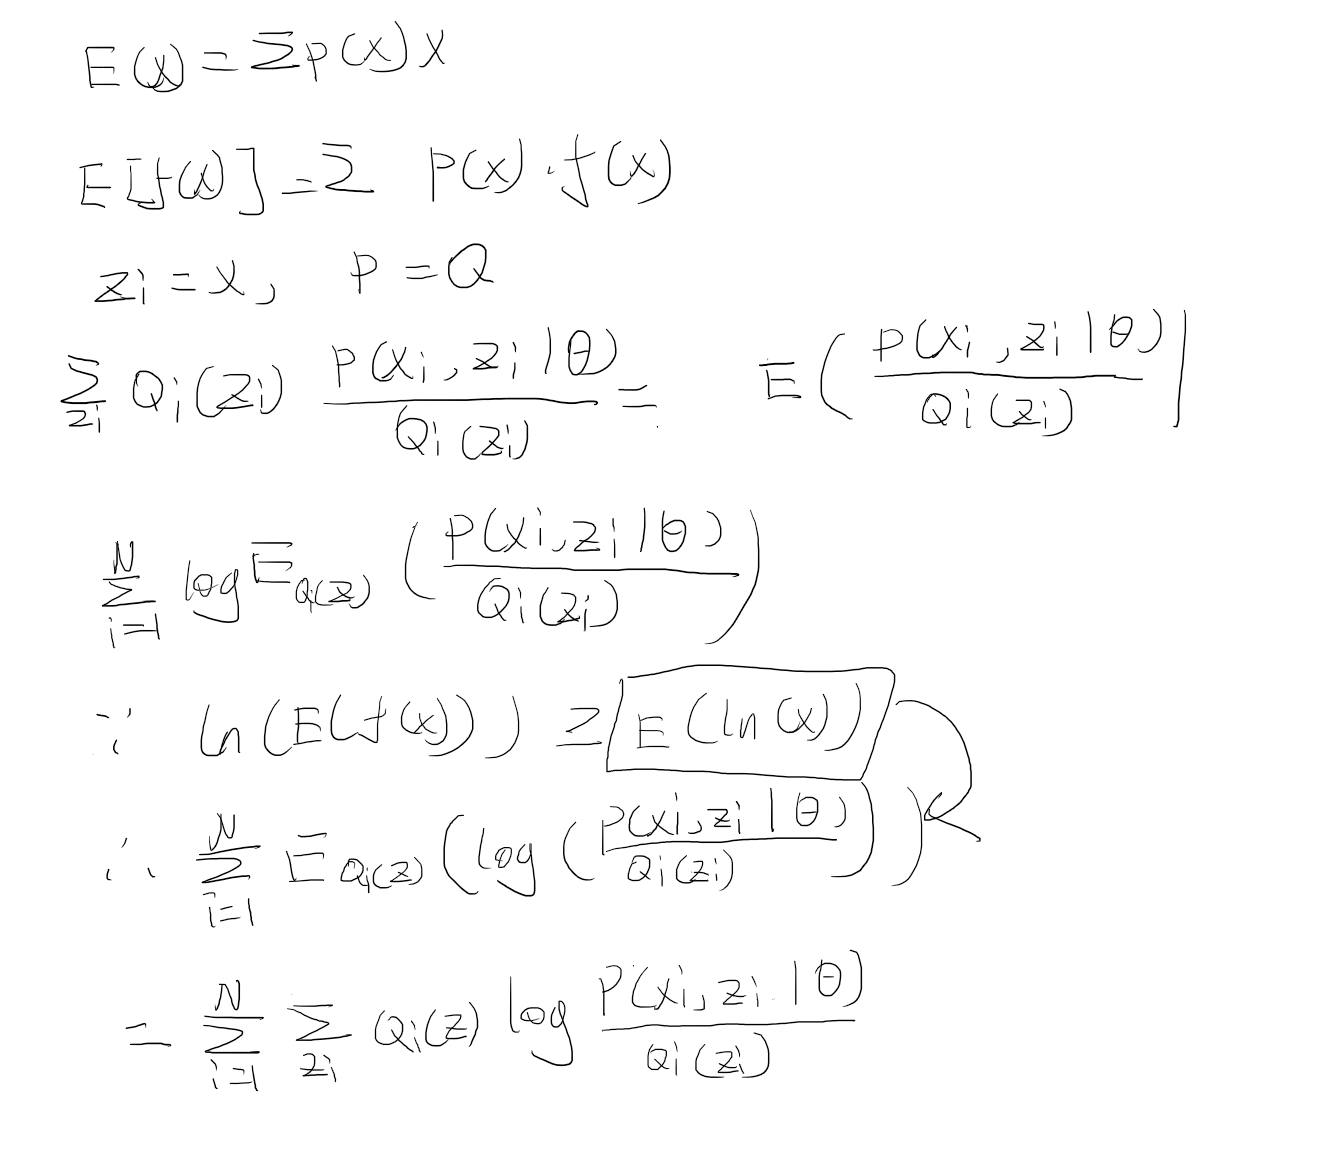 E(x) = Σp(x)x
E[f(x)] = Σ P(x)·f(x)
zi = x, P = Q
Σ_{zi} Qi(zi) P(xi, zi | θ) / Qi(zi) = E( P(xi, zi | θ) / Qi(zi) |
Σ_{i=1}^{N} log E_{Qi(z)} ( P(xi, zi | θ) / Qi(zi) )
∵ ln(E(f(x))) ≥ E(ln(x))
∴ Σ_{i=1}^{N} E_{Qi(z)} (log ( P(xi, zi | θ) / Qi(zi) ))
= Σ_{i=1}^{N} Σ_{zi} Qi(z) log P(xi, zi | θ) / Qi(zi)